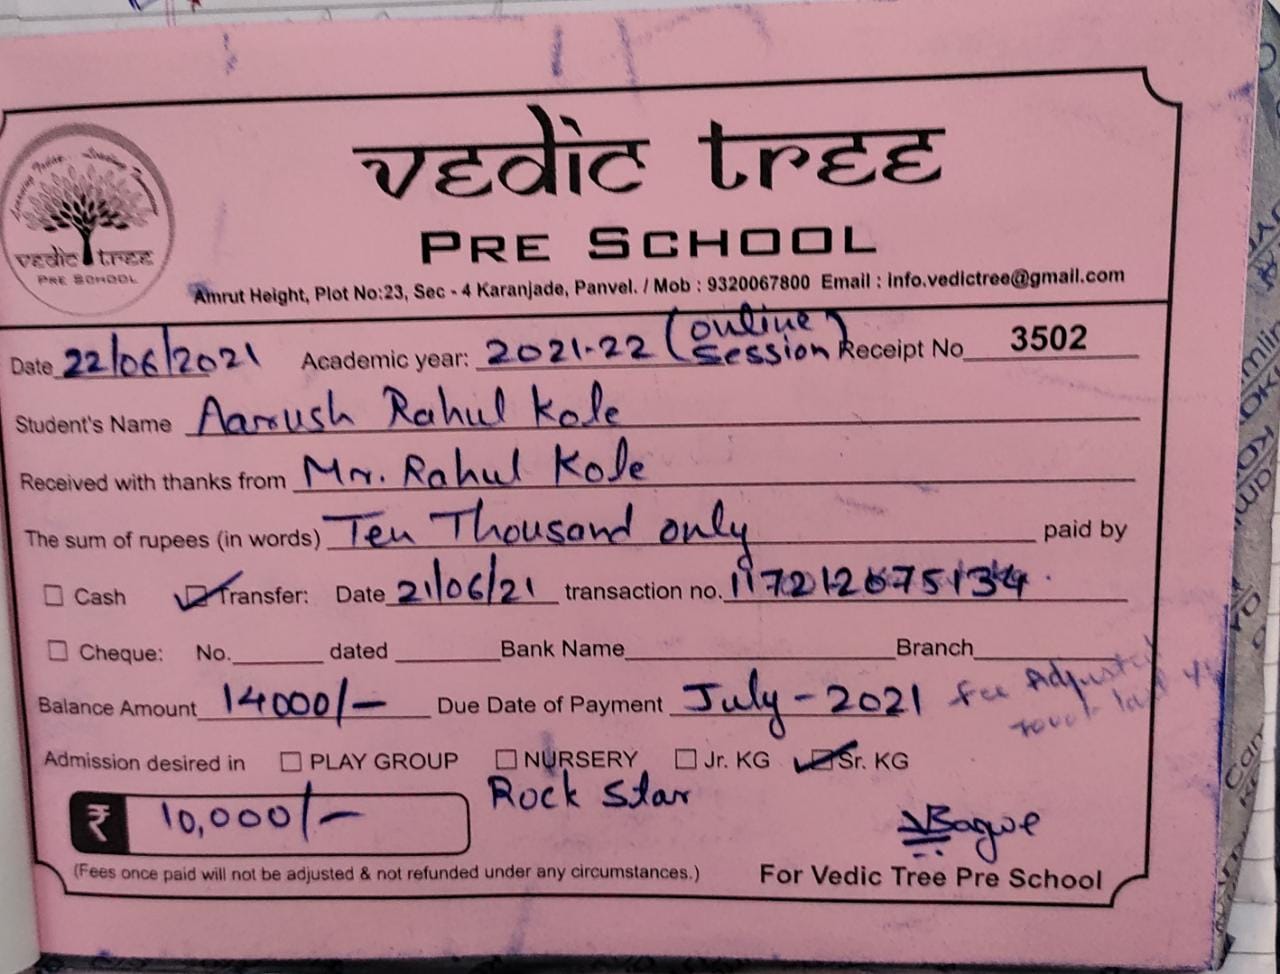 vedic tree
PRE SCHOOL
vedic tree
PRE SCHOOL
Amrut Height, Plot No:23, Sec - 4 Karanjade, Panvel. / Mob : 9320067800 Email : info.vedictree@gmail.com
Date 22/06/2021 Academic year: 2021-22 (online session) Receipt No 3502
Student's Name Aarush Rahul Kole
Received with thanks from Mr. Rahul Kole
The sum of rupees (in words) Ten Thousand only paid by
☐ Cash ☑ Transfer: Date 21/06/21 transaction no.
☐ Cheque: No. dated Bank Name Branch
Balance Amount 14000/- Due Date of Payment July - 2021 fee Adjusted
Admission desired in ☐ PLAY GROUP ☐ NURSERY ☐ Jr. KG ☑ Sr. KG
Rock Star
₹ 10,000/-
(Fees once paid will not be adjusted & not refunded under any circumstances.) For Vedic Tree Pre School